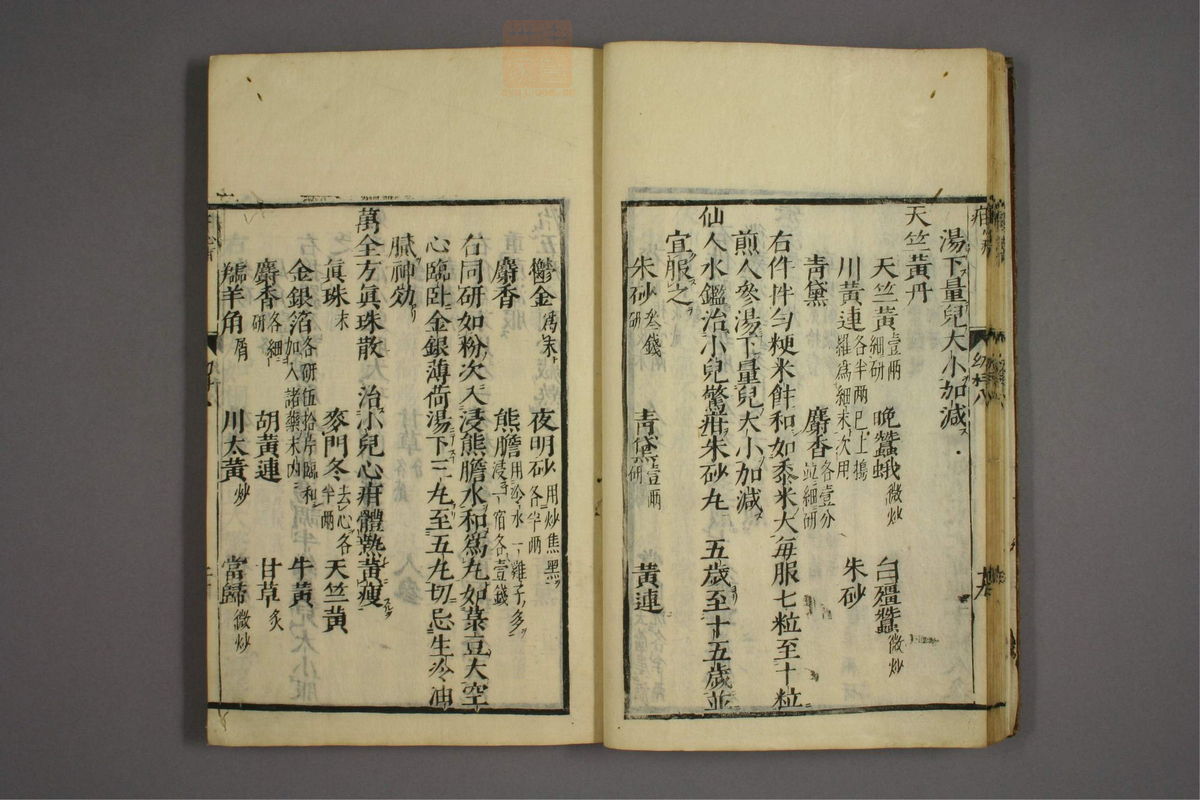 湯下量兒大小加減
天竺黃丹
天竺黃壹兩細研 晩蠶蛾微炒 白殭蠶微炒
川黃連各半兩巳上擣羅爲細末次用 朱砂
青黛 麝香各壹分並細研
右件拌勻粳米飰和如黍米大每服七粒至十粒
煎人參湯下量兒大小加減
仙人水鑑治小兒驚疳朱砂丸 五歲至十五歲並
宜服之
朱砂叁錢研 青黛壹兩研 黃連
鬱金爲末 夜明砂用炒焦黑各半兩
麝香 熊膽用冷水一雞子多浸一宿各壹錢
右同研如粉次入浸熊膽水和爲丸如菉豆大空
心臨臥金銀薄荷湯下三丸至五丸切忌生冷油
膩神効
萬全方眞珠散 治小兒心疳體熱黃瘦
眞珠末 麥門冬去心各半兩 天竺黃
金銀箔各研伍拾片臨和加入諸藥末內 牛黃
麝香各細研 胡黃連 甘草炙
羚羊角屑 川大黃炒 當歸微炒